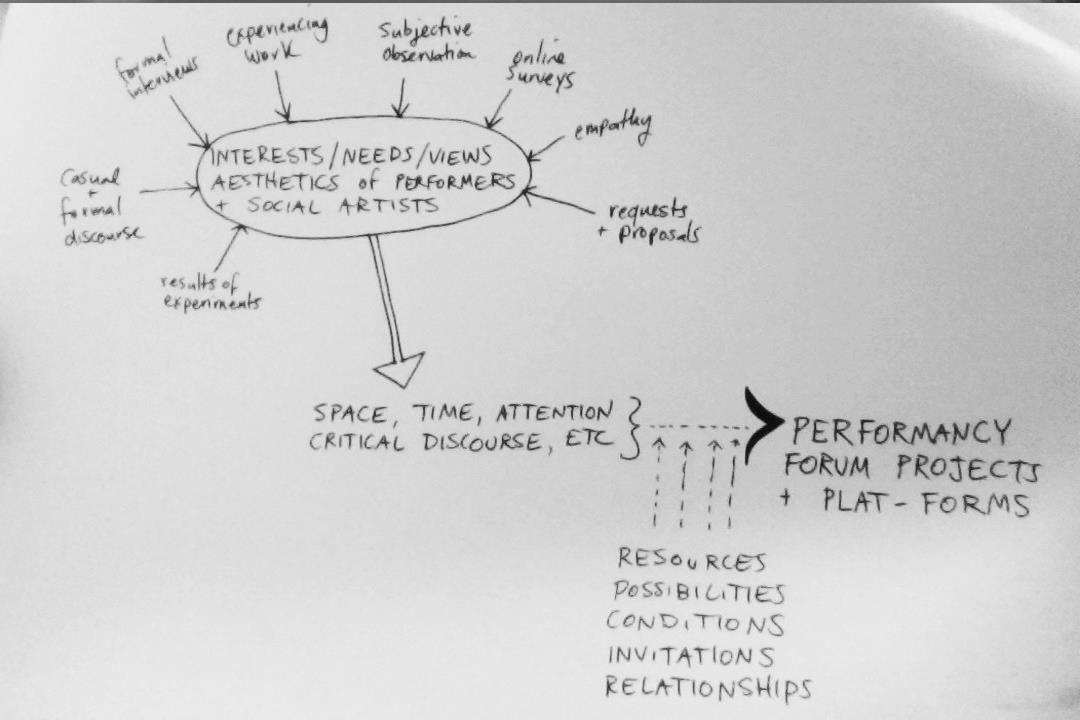 formal
interviews
experiencing
work
Subjective
observation
online
surveys
empathy
requests
+ proposals
Casual
+
formal
discourse
results of
experiments
INTERESTS/NEEDS/VIEWS
AESTHETICS of PERFORMERS
+ SOCIAL ARTISTS
SPACE, TIME, ATTENTION
CRITICAL DISCOURSE, ETC
PERFORMANCY
FORUM PROJECTS
+ PLAT-FORMS
RESOURCES
POSSIBILITIES
CONDITIONS
INVITATIONS
RELATIONSHIPS